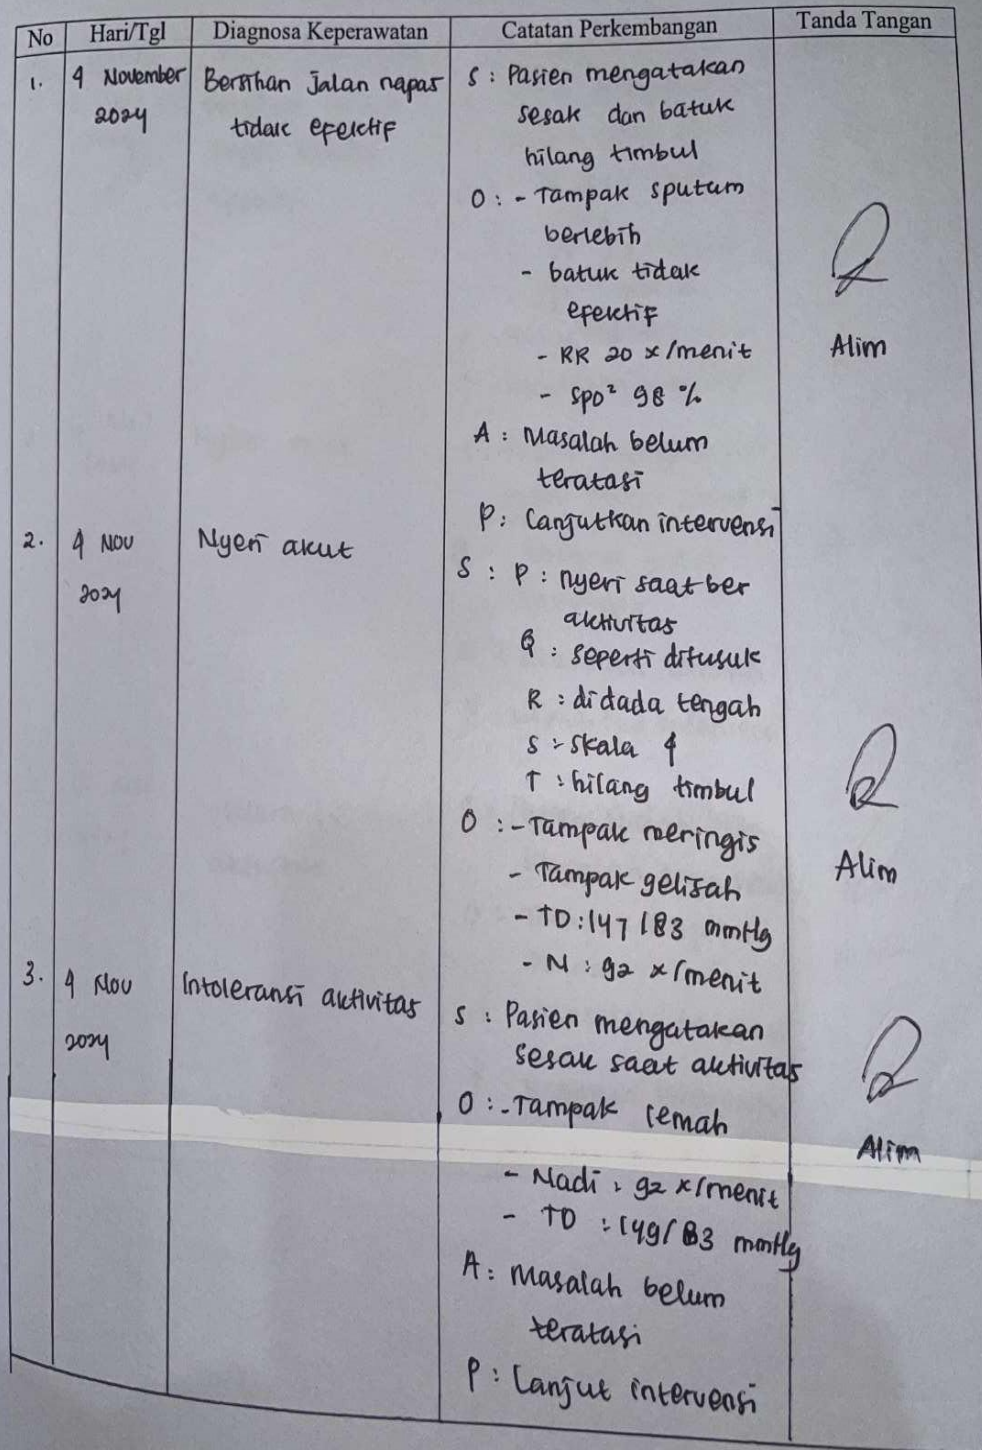 No Hari/Tgl Diagnosa Keperawatan Catatan Perkembangan Tanda Tangan
1. 4 November Bersihan Jalan napas S : Pasien mengatakan
2024 tidak efektif sesak dan batuk
hilang timbul
O : - Tampak sputum
berlebih
- batuk tidak
efektif
- RR 20 x/menit
Alim
- SpO² 98 %
A : Masalah belum
teratasi
P : Lanjutkan intervensi
2. 4 Nov Nyeri akut
2024
S : P : nyeri saat ber
aktivitas
Q : seperti ditusuk
R : didada tengah
S : Skala 4
T : hilang timbul
O : - Tampak meringis
- Tampak gelisah
Alim
- TD : 147/83 mmHg
- N : 92 x/menit
3. 4 Nov Intoleransi aktivitas
2024
S : Pasien mengatakan
sesak saat aktivitas
O : - Tampak lemah
Alim
- Nadi : 92 x/menit
- TD : 149/83 mmHg
A : Masalah belum
teratasi
P : Lanjut intervensi